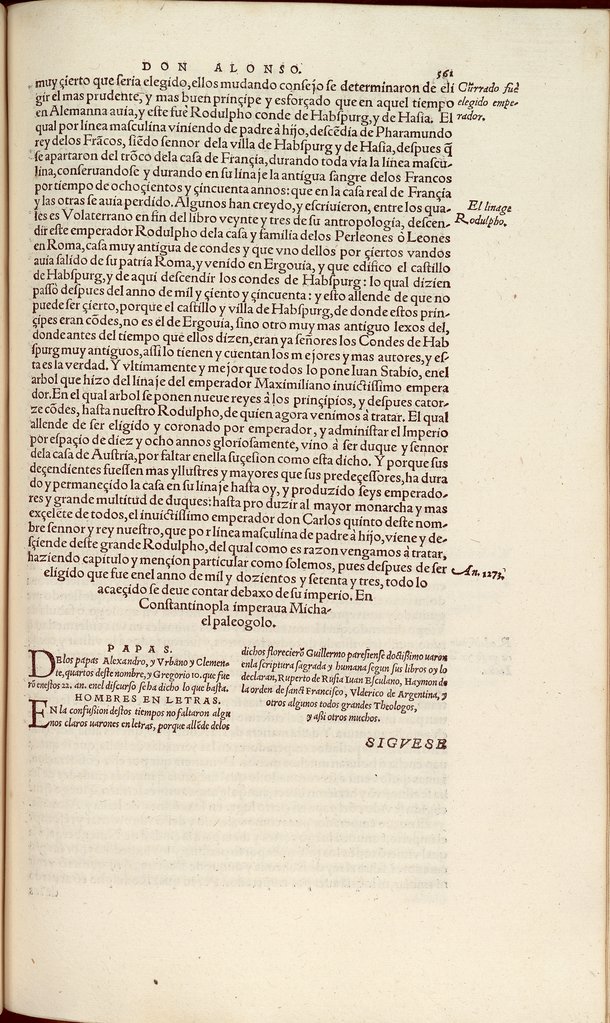 DON ALONSO.
361
muy çierto que seria elegido, ellos mudando consejo se determinaron de eli
gir el mas prudente, y mas buen prinçipe y esforçado que en aquel tiempo
en Alemanna auia, y este fuè Rodulpho conde de Habspurg, y de Hasia. El
qual por línea masculina viniendo de padre à hijo, descẽdia de Pharamundo
rey delos Frãcos, siẽdo sennor dela villa de Habspurg y de Hasia, despues q̃
se apartaron del trõco dela casa de Françia, durando toda vía la línea mascu-
lina, conseruandose y durando en su linaje la antigua sangre delos Francos
por tiempo de ochoçientos y çincuenta annos: que en la casa real de Françia
y las otras se auia perdido. Algunos han creydo, y escriuieron, entre los qua-
les es Volaterrano en fin del libro veynte y tres de su antropologia, descen-
dir este emperador Rodulpho dela casa y familia delos Perleones ò Leones
en Roma, casa muy antigua de condes y que vno dellos por çiertos vandos
auia salido de su patria Roma, y venido en Ergouia, y que edifico el castillo
de Habspurg, y de aqui descendir los condes de Habspurg: lo qual dizien
passò despues del anno de mil y çiento y çincuenta: y esto allende de que no
puede ser çierto, porque el castillo y villa de Habspurg, de donde estos prin-
çipes eran cõdes, no es èl de Ergouia, sino otro muy mas antiguo lexos del,
donde antes del tiempo que ellos dizen, eran ya señores los Condes de Hab
spurg muy antiguos, assi lo tienen y cuentan los mejores y mas autores, y es-
ta es la verdad. Y vltimamente y mejor que todos lo pone Iuan Stabio, enel
arbol que hizo del linaje del emperador Maximiliano inuictissimo empera
dor. En el qual arbol se ponen nueue reyes à los prinçipios, y despues cator-
ze cõdes, hasta nuestro Rodulpho, de quien agora venimos à tratar. El qual
allende de ser eligido y coronado por emperador, y administar el Imperio
por espaçio de diez y ocho annos gloriosamente, vino à ser duque y sennor
dela casa de Austria, por faltar enella suçesion como esta dicho. Y porque sus
deçendientes fuessen mas yllustres y mayores que sus predeçessores, ha dura
do y permaneçido la casa en su linaje hasta oy, y produzido seys emperado-
res y grande multitud de duques: hasta produzir al mayor monarcha y mas
exçelẽte de todos, el inuictissimo emperador don Carlos quinto deste nom-
bre sennor y rey nuestro, que por línea masculina de padre à hijo, viene y de-
sçiende deste grande Rodulpho, del qual como es razon vengamos à tratar,
haziendo capitulo y mençion particular como solemos, pues despues de ser
eligido que fue enel anno de mil y dozientos y setenta y tres, todo lo
acaeçido se deue contar debaxo de su imperio. En
Constantinopla imperaua Micha-
el paleogolo.
Currado fuè
elegido empe-
rador.
El linage
Rodulpho.
An. 1273.
PAPAS.
DElos papas Alexandro, y Vrbano y Clemen-
te, quartos deste nombre, y Gregorio 10. que fue
rõ enestos 22. an. enel discurso se ha dicho lo que basta.
HOMBRES EN LETRAS.
EN la confusion destos tiempos no faltaron algu
nos claros uarones en letras, porque allẽde delos
dichos florecierõ Guillermo parisiense doctissimo uaron
enla scriptura sagrada y humana segun sus libros oy lo
declaran, Ruperto de Rusia Iuan Esculano, Haymon de
la orden de sanct Francisco, Vlderico de Argentina, y
otros algunos todos grandes Theologos,
y assi otros muchos.
SIGVESE